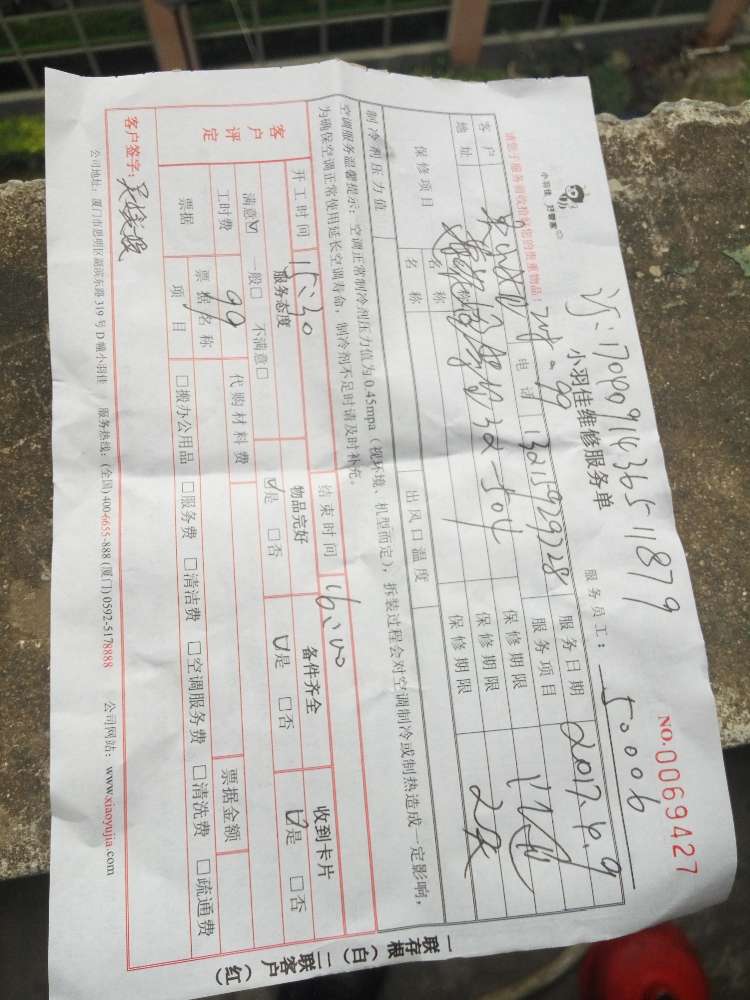 小羽佳 好管家
NO.0069427
订:17040914365 11879
小羽佳维修服务单
服务员工: 50006
请您于服务前收拾好您的贵重物品!
客户 电话 13215929728 服务日期 2017.4.9
地址 32-504 服务项目
保修项目 名称 保修期限
名称 保修期限 2天
制冷剂压力值 出风口温度
空调服务温馨提示:空调正常制冷剂压力值为0.45mpa(视环境、机型而定),拆装过程会对空调制冷或制热造成一定影响,
为确保空调正常使用延长空调寿命,制冷剂不足时请及时补充。
开工时间 15:30 结束时间 16:00
客户评定 服务态度 物品完好 备件齐全 收到卡片
满意☑ 一般□ 不满意□ ☑是 □否 ☑是 □否 ☑是 □否
工时费 99 代购材料费
票据 票据名称 票据金额
项目 □搬办公用品 □服务费 □清洁费 □空调服务费 □清洗费 □疏通费
客户签字:
公司地址:厦门市思明区湖滨东路319号D幢小羽佳 服务热线:(全国)400-6655-888 (厦门)0592-5178888 公司网站:www.xiaoyujia.com
一联存根(白)二联客户(红)